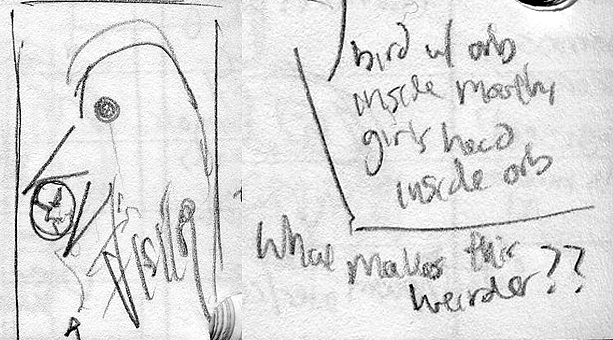 bird w/ orb
inside mouth
girls head
inside orb
What makes this
weirder??